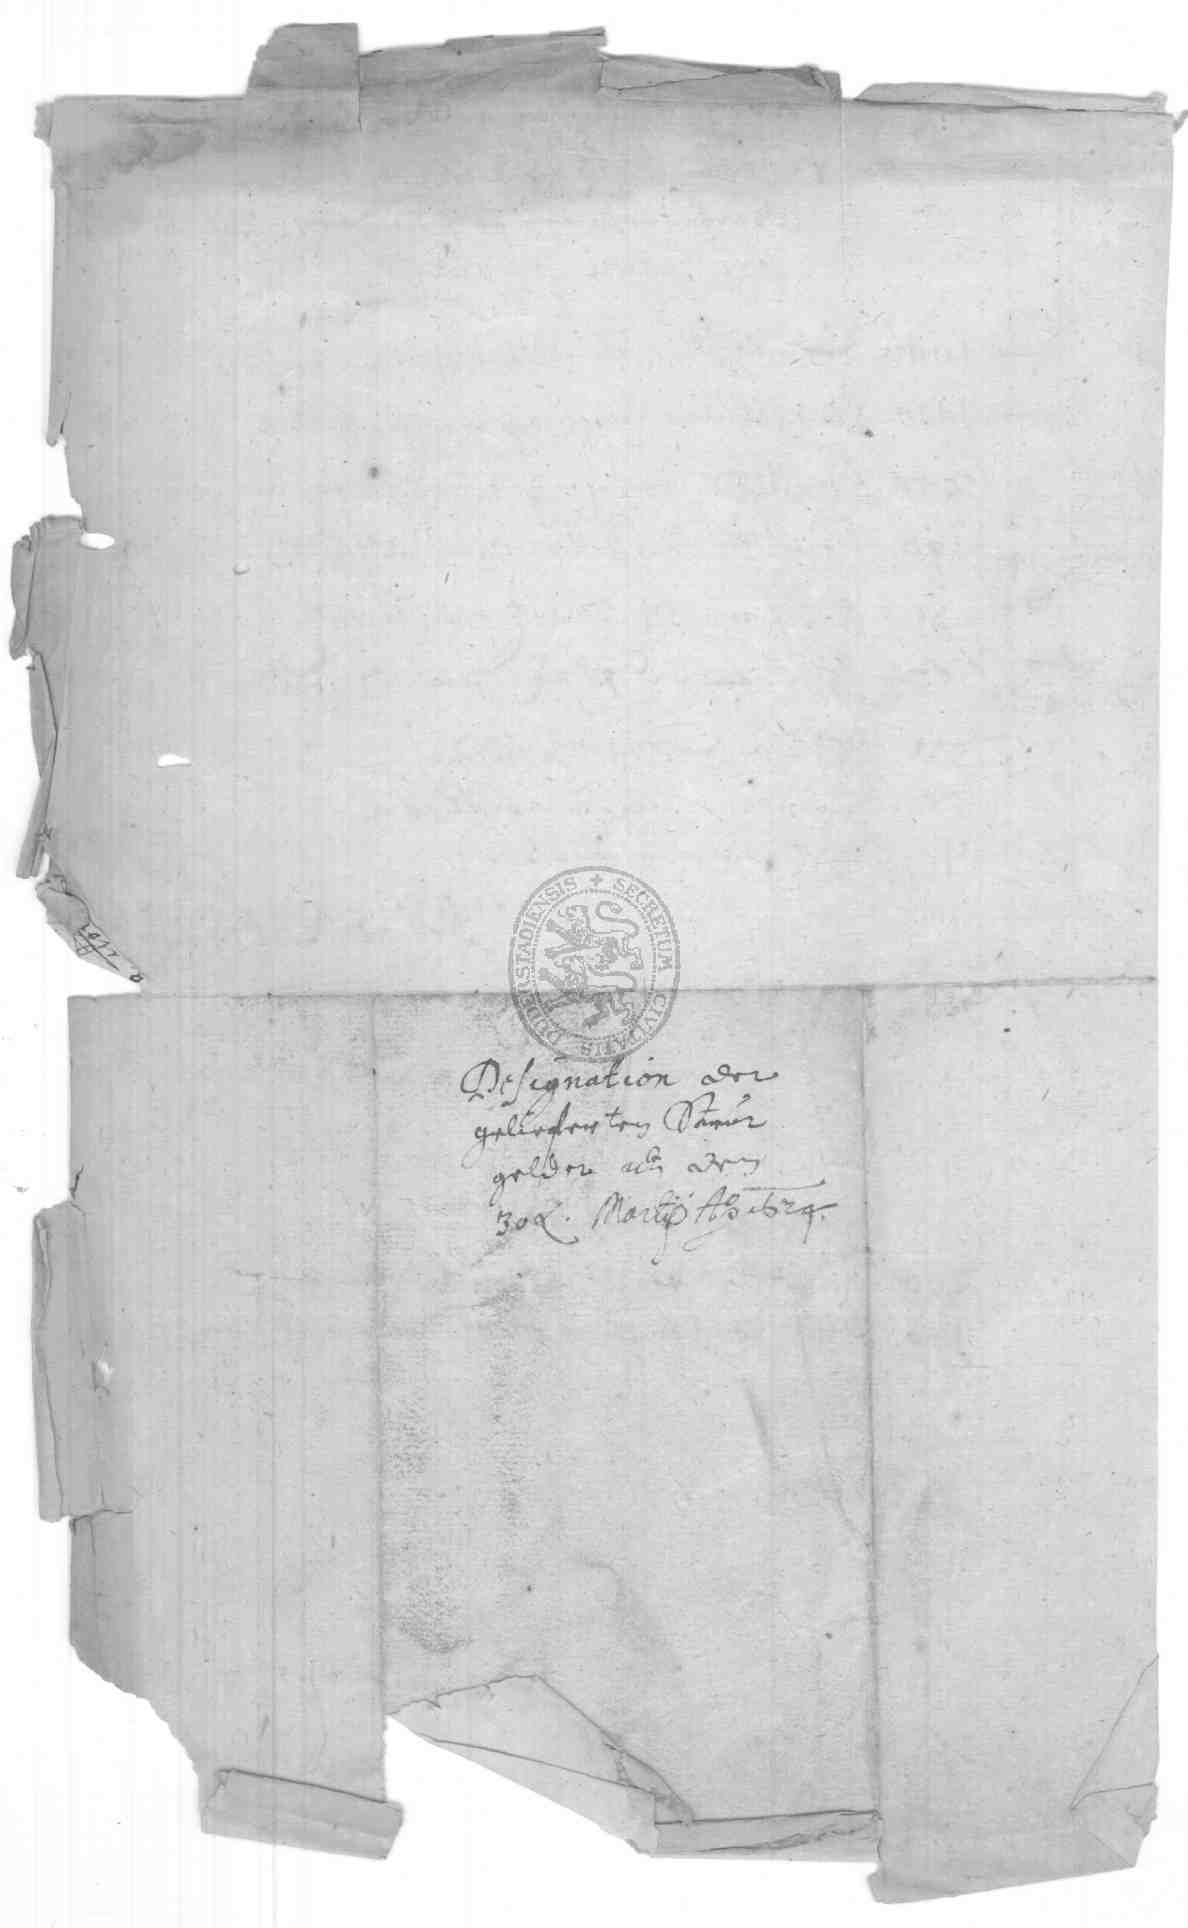 SECRETUM CIVITATIS DUDERSTADIENSIS
Designation der
gelieferten Steuer
gelder den
30 Martij Ao